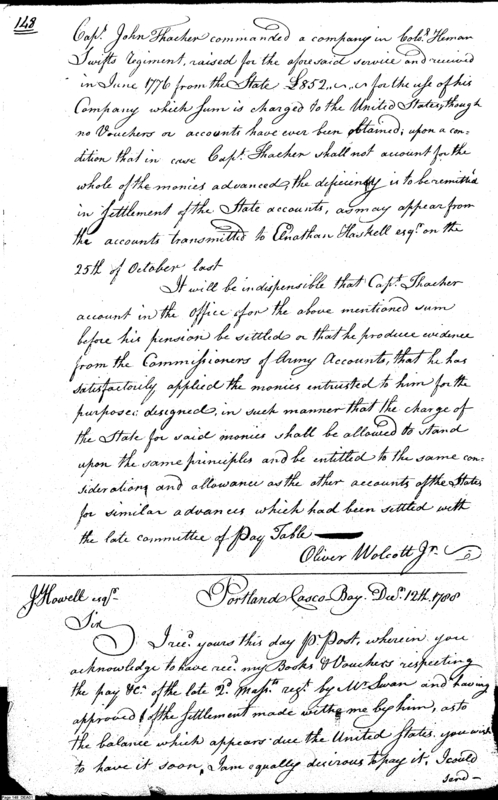 148
Capt. John Thacher commanded a company in Colo. Heman
Swifts Regiment, raised for the aforesaid service and received
in June 1776 from the State £852.,~,~ for the use of his
Company which sum is charged to the United States, though
no Vouchers or accounts have ever been obtained; upon a con-
dition that in case Capt. Thacher shall not account for the
whole of the monies advanced, the deficiency is to be remitted
in settlement of the State accounts, as may appear from
the accounts transmitted to Elnathan Haskell esqr. on the
25th of October last
It will be indispensible that Capt. Thacher
account in the Office for the above mentioned sum
before his pension be settled or that he produce evidence
from the Commissioners of Army Accounts, that he has
satisfactorily applied the monies entrusted to him for the
purposes designed, in such manner that the charge of
the State for said monies shall be allowed to stand
upon the same principles and be entitled to the same con-
sideration, and allowance as the other accounts of the States
for similar advances which had been settled with
the late committee of Pay Table —
Oliver Wolcott Jr.
J Howell esqr.
Portland Casco Bay Decr. 12th. 1788
Sir
I recd. yours this day Pr Post, wherein you
acknowledge to have recd. my Books & Vouchers respecting
the pay &c. of the late 2d. Massts. regt. by Mr. Swan and having
approved of the Settlement made with me by him, as to
the balance which appears due the United States, you wish
to have it soon, I am equally desirous to pay it, I could
send—